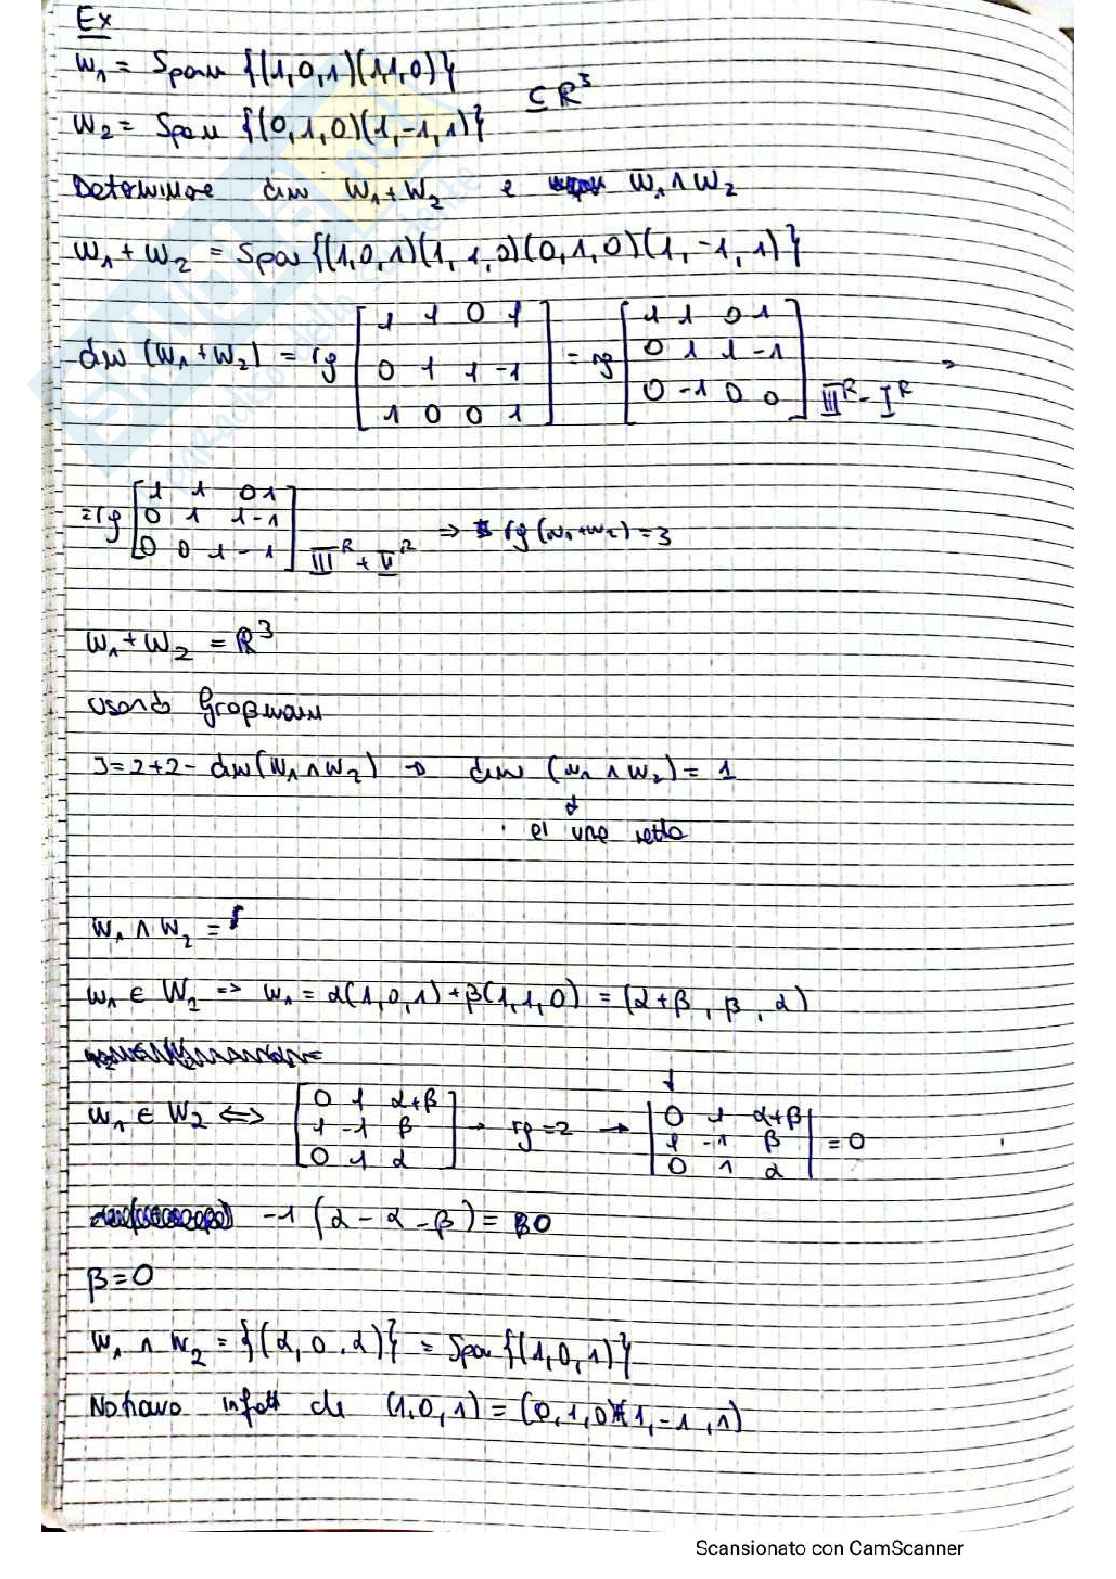 Ex
W1 = Span {(1,0,1)(1,1,0)}
⊆ R³
W2 = Span {(0,1,0)(1,-1,1)}
Determinare dim W1+W2 e W1 ∧ W2
W1 + W2 = Span{(1,0,1)(1,1,0)(0,1,0)(1,-1,1)}
dim (W1+W2) = rg [1 1 0 1 = rg [1 1 0 1
0 1 1 -1 0 1 1 -1 =
1 0 0 1] 0 -1 0 0] III^R - I^R
= rg [1 1 0 1
0 1 1 -1 ⇒ rg (W1+W2) = 3
0 0 1 -1] III^R + II^R
W1 + W2 = R³
usando Graβmann
3=2+2- dim(W1 ∧ W2) → dim (W1 ∧ W2) = 1
↓
è una retta
W1 ∧ W2 =
W1 ∈ W1 => W1 = α(1,0,1)+β(1,1,0) = (α+β, β, α)
W1 ∈ W2 <=> [0 1 α+β → rg=2 → |0 1 α+β|
1 -1 β |1 -1 β| = 0
0 1 α] |0 1 α|
-1 (α - α - β) = 0
β = 0
W1 ∧ W2 = {(α, 0, α)} = Span{(1,0,1)}
Notiamo infatti che (1,0,1) = (0,1,0)+(1,-1,1)
Scansionato con CamScanner